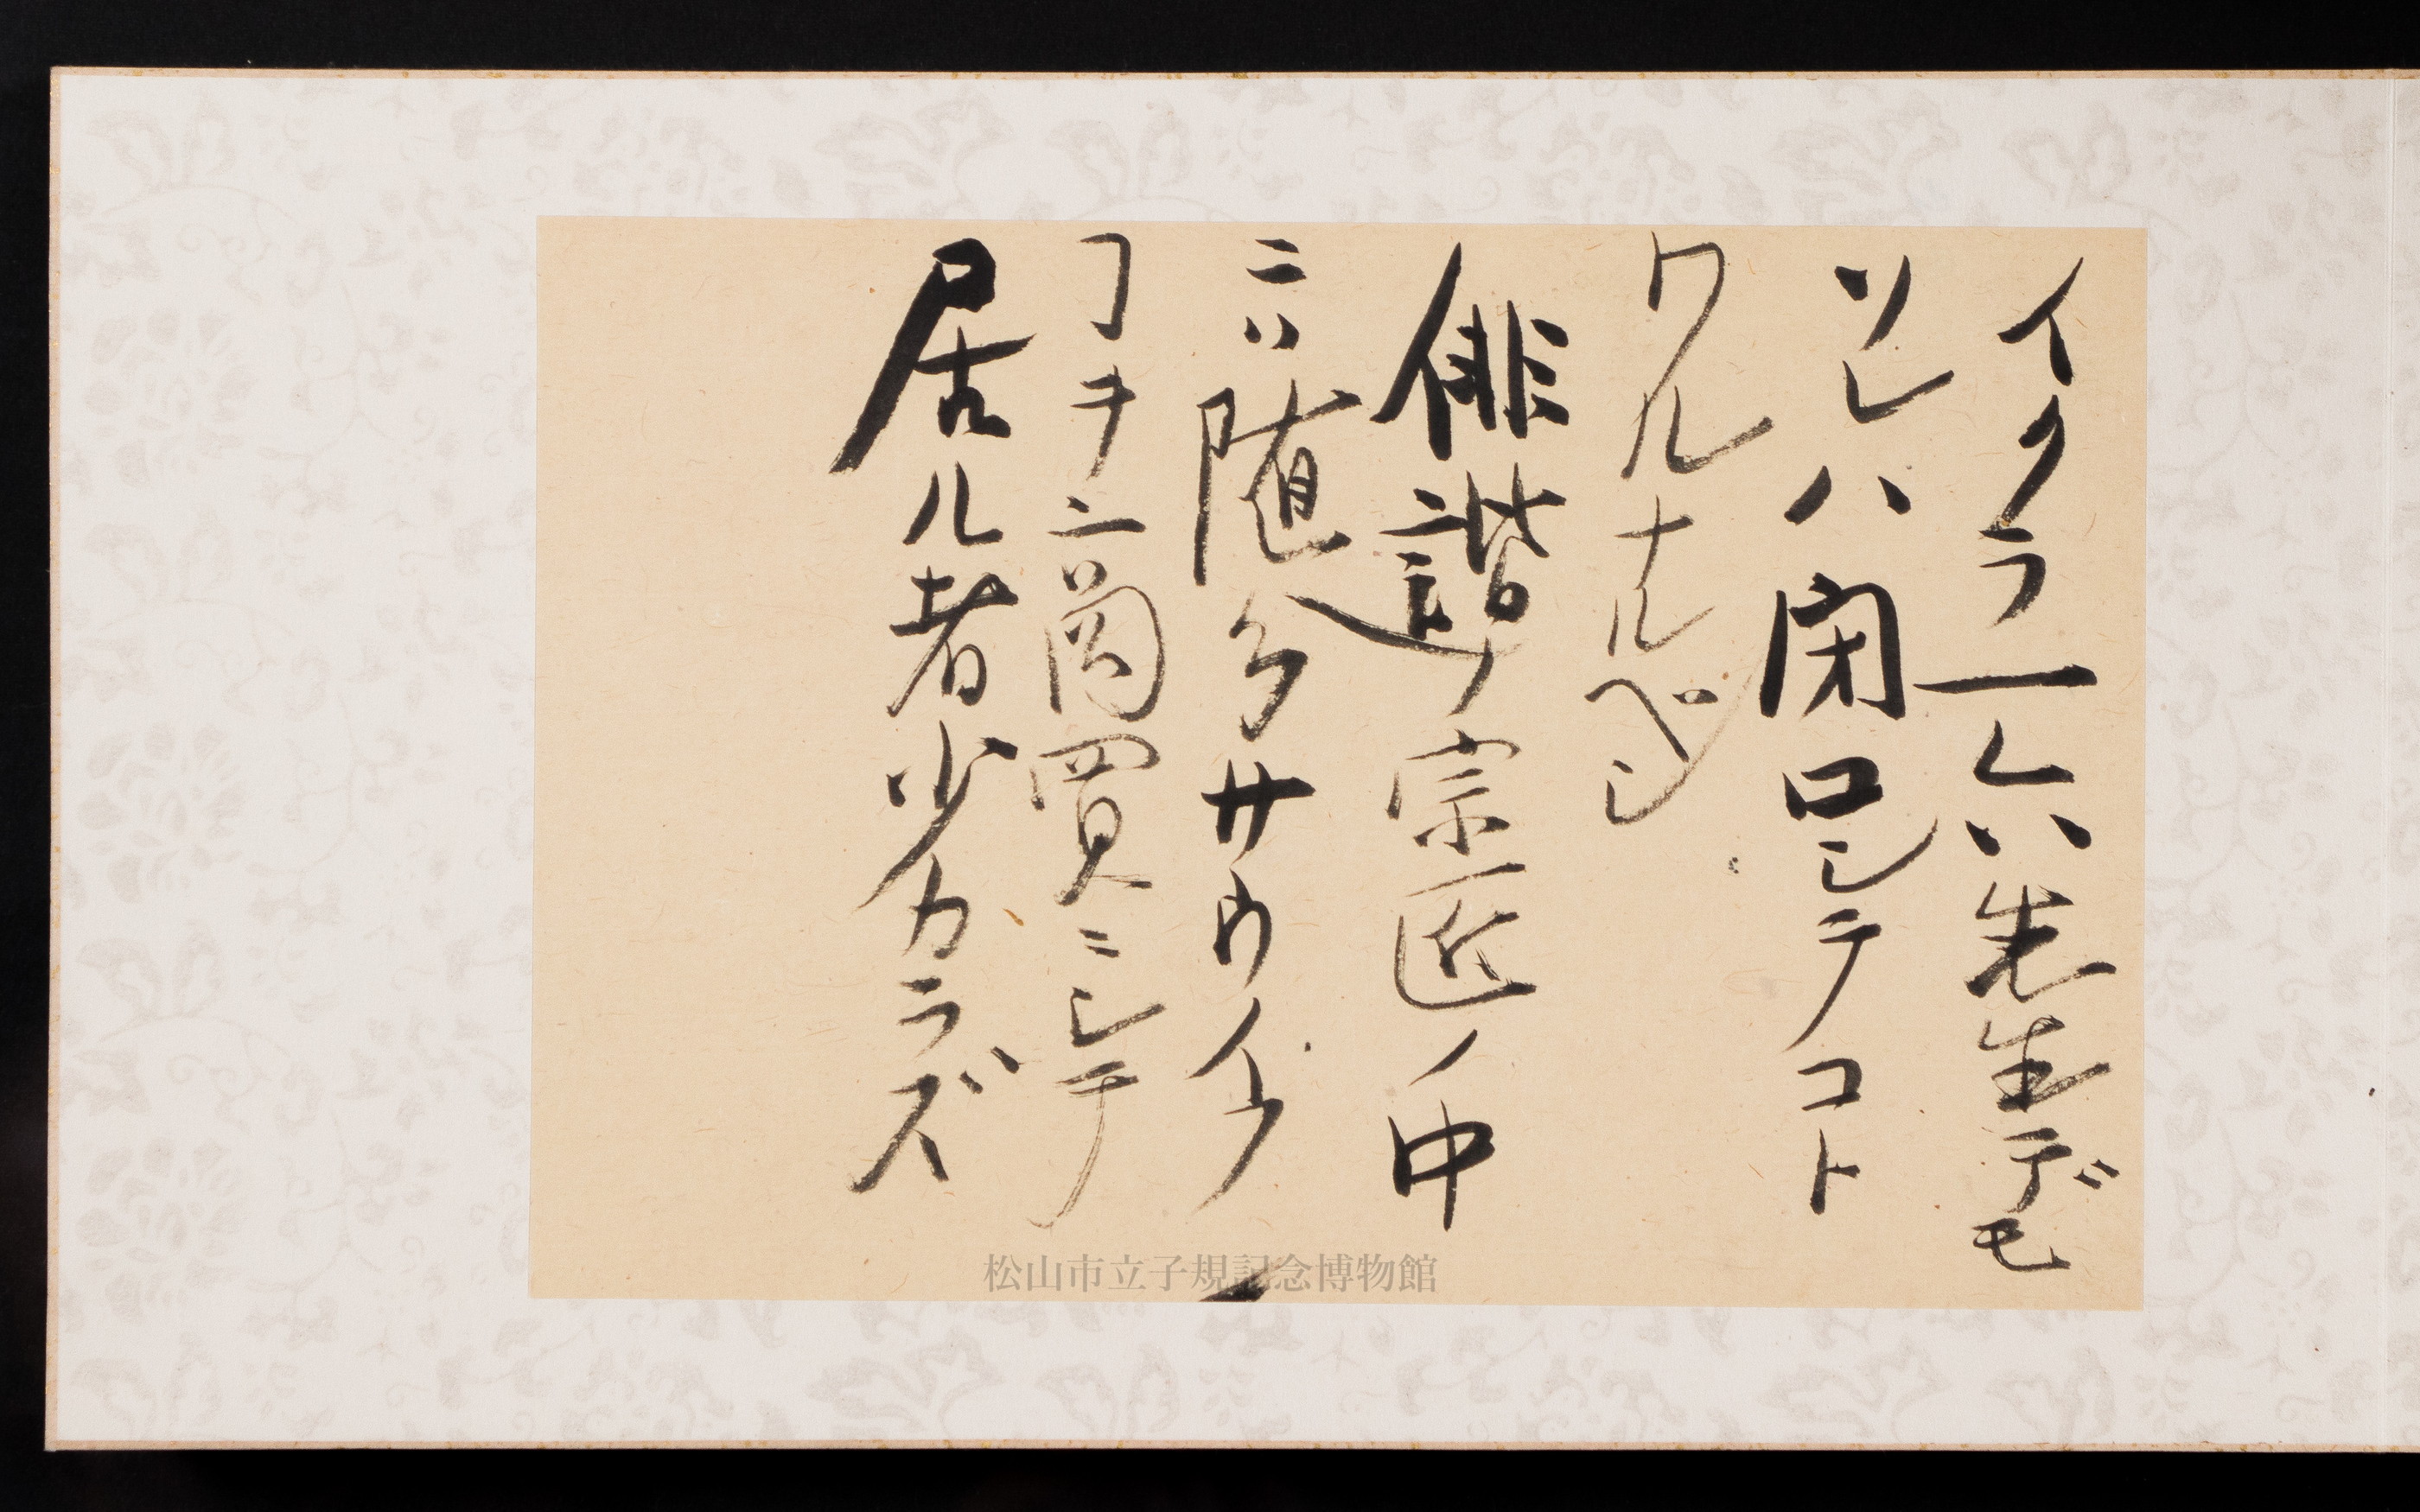 イクラ一六先生デモ
ソレハ閉口シテコト
ワルナルベシ
俳諧ノ宗匠ノ中
ニハ随分サウイフ
ヿヲ商賣ニシテ
居ル者少カラズ
松山市立子規記念博物館